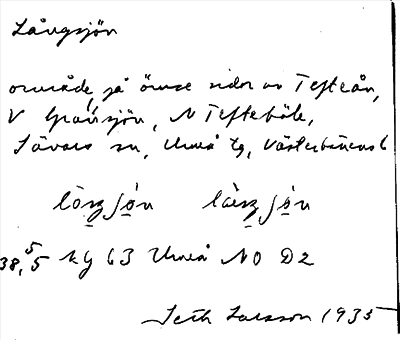 Långsjön
område på ömse sidor av Tefteån,
V Gransjön, N Tefteböle,
Sävars sn, Umeå tg, Västerbottens l
63 Umeå NO D2
Seth Larsson 1935